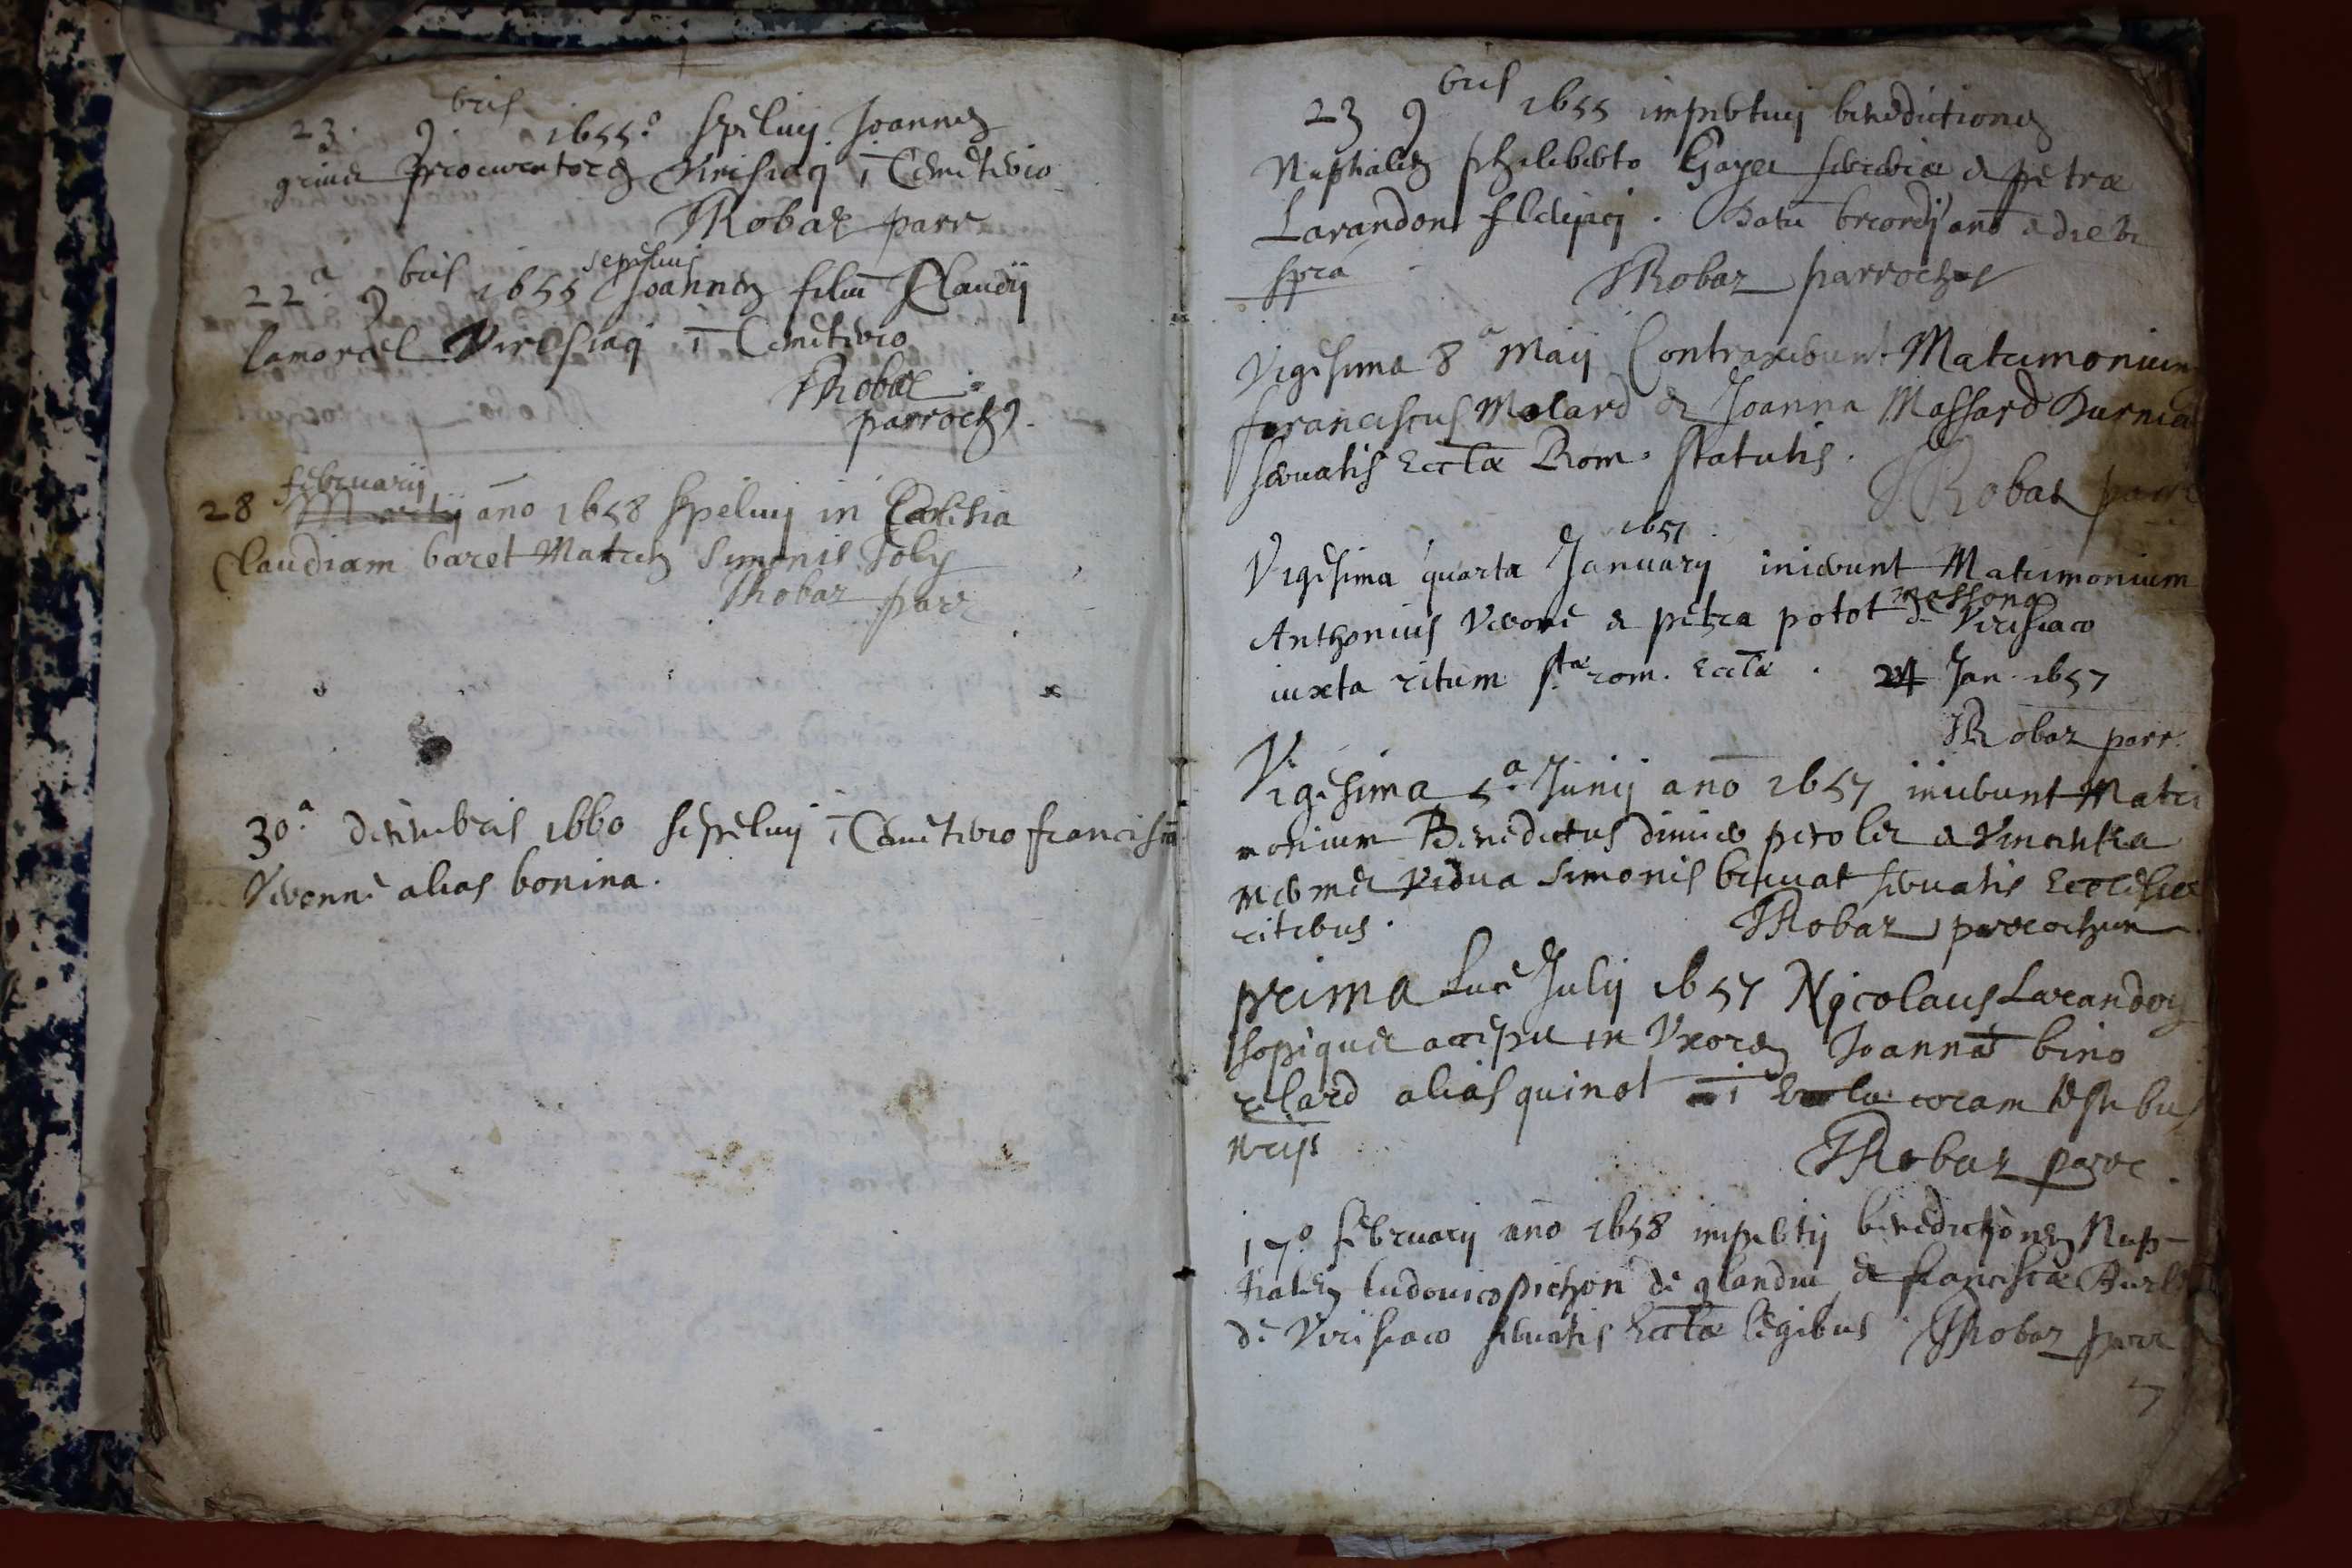 23. 9.bris 1655.° spelivi Joannẽ
procuratorẽ Virisiaci ī Cemeterio
JRobaz parr
22a 9bris 1655 sepelivi Joannẽ filiũ Claudij
lamorael Virisiaci ī Cemeterio
JRobaz
parroch9.
28 februarij Martij año 1658 spelivi in Ecclesia
Claudiam baret Matrẽ Simonis Joly
JRobaz parr
30.a decembris 1660 sepelivi ī Cemeterio franciscã
Vevonne alias bonina.
23 9bris 1655 impertivi benedictionẽ
Nuptialẽ philiberto Gayer & petræ
Larandon . Datũ año & die ut
spra JRobaz parrochus
Vigesima 8a Maij Contraxerunt Matrimonium
franciscus Molard & Joanna Massard
servatis Ecclæ Rom. statutis.
JRobaz parr
1657
Vigesima quarta Januarij inierunt Matrimonium
Anthonius Vevone & petra potot massong de Virisiaco
iuxta ritum stæ rom. Ecclæ . 24 Jan. 1657
JRobaz parr.
Vigesima 5.a Junij año 1657 inierunt Matri
monium Benedictus dimier & Vincentia
mermet vidua Simonis servatis Ecclesiæ
ritibus. JRobaz parrochum
prima Luce Julij 1657 Nicolaus Larandon
accepit in Uxorẽ Joannã bino
clard alias quinot ī Eccla coram testibus
JRobaz parr.
17° februarij año 1658 impertij benedictionẽ Nup-
tialẽ ludovico pichon de glandiu & franciscæ
de Virisiaco servatis Ecclæ legibus JRobaz parr
7